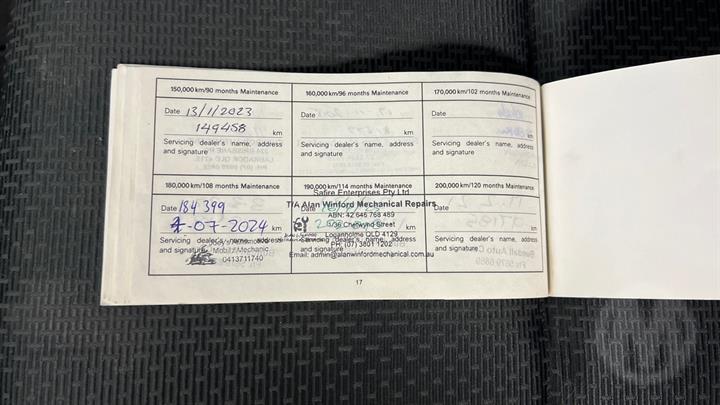 150,000 km/90 months Maintenance
Date 13/1/2023
149458 km
Servicing dealer's name, address
and signature
160,000 km/96 months Maintenance
Date
km
Servicing dealer's name, address
and signature
170,000 km/102 months Maintenance
Date
km
Servicing dealer's name, address
and signature
180,000 km/108 months Maintenance
Date 184 399
-07-2024 km
Servicing dealer's name, address
and signature
Mobile Mechanic
0413711740
190,000 km/114 months Maintenance
Date
km
Servicing dealer's name, address
and signature
Safire Enterprises Pty Ltd
T/A Alan Winford Mechanical Repairs
ABN: 42 646 768 489
3/36 Chetwynd Street
Loganholme QLD 4129
PH: (07) 3801 1202
Email: admin@alanwinfordmechanical.com.au
200,000 km/120 months Maintenance
Date
km
Servicing dealer's name, address
and signature
17